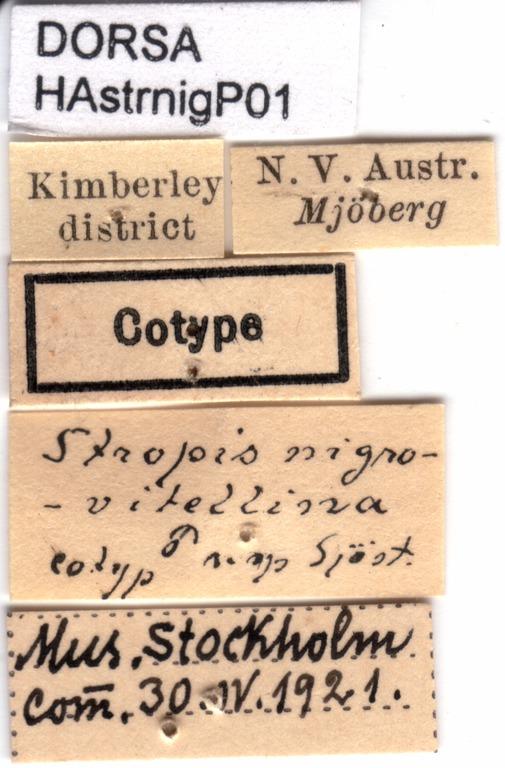 DORSA
HAstrnigP01
Kimberley
district
N. V. Austr.
Mjöberg
Cotype
Stropis nigro-
-vitellina
cotyp ♂ n. sp Sjöst.
Mus. Stockholm
com̄. 30. IV. 1921.